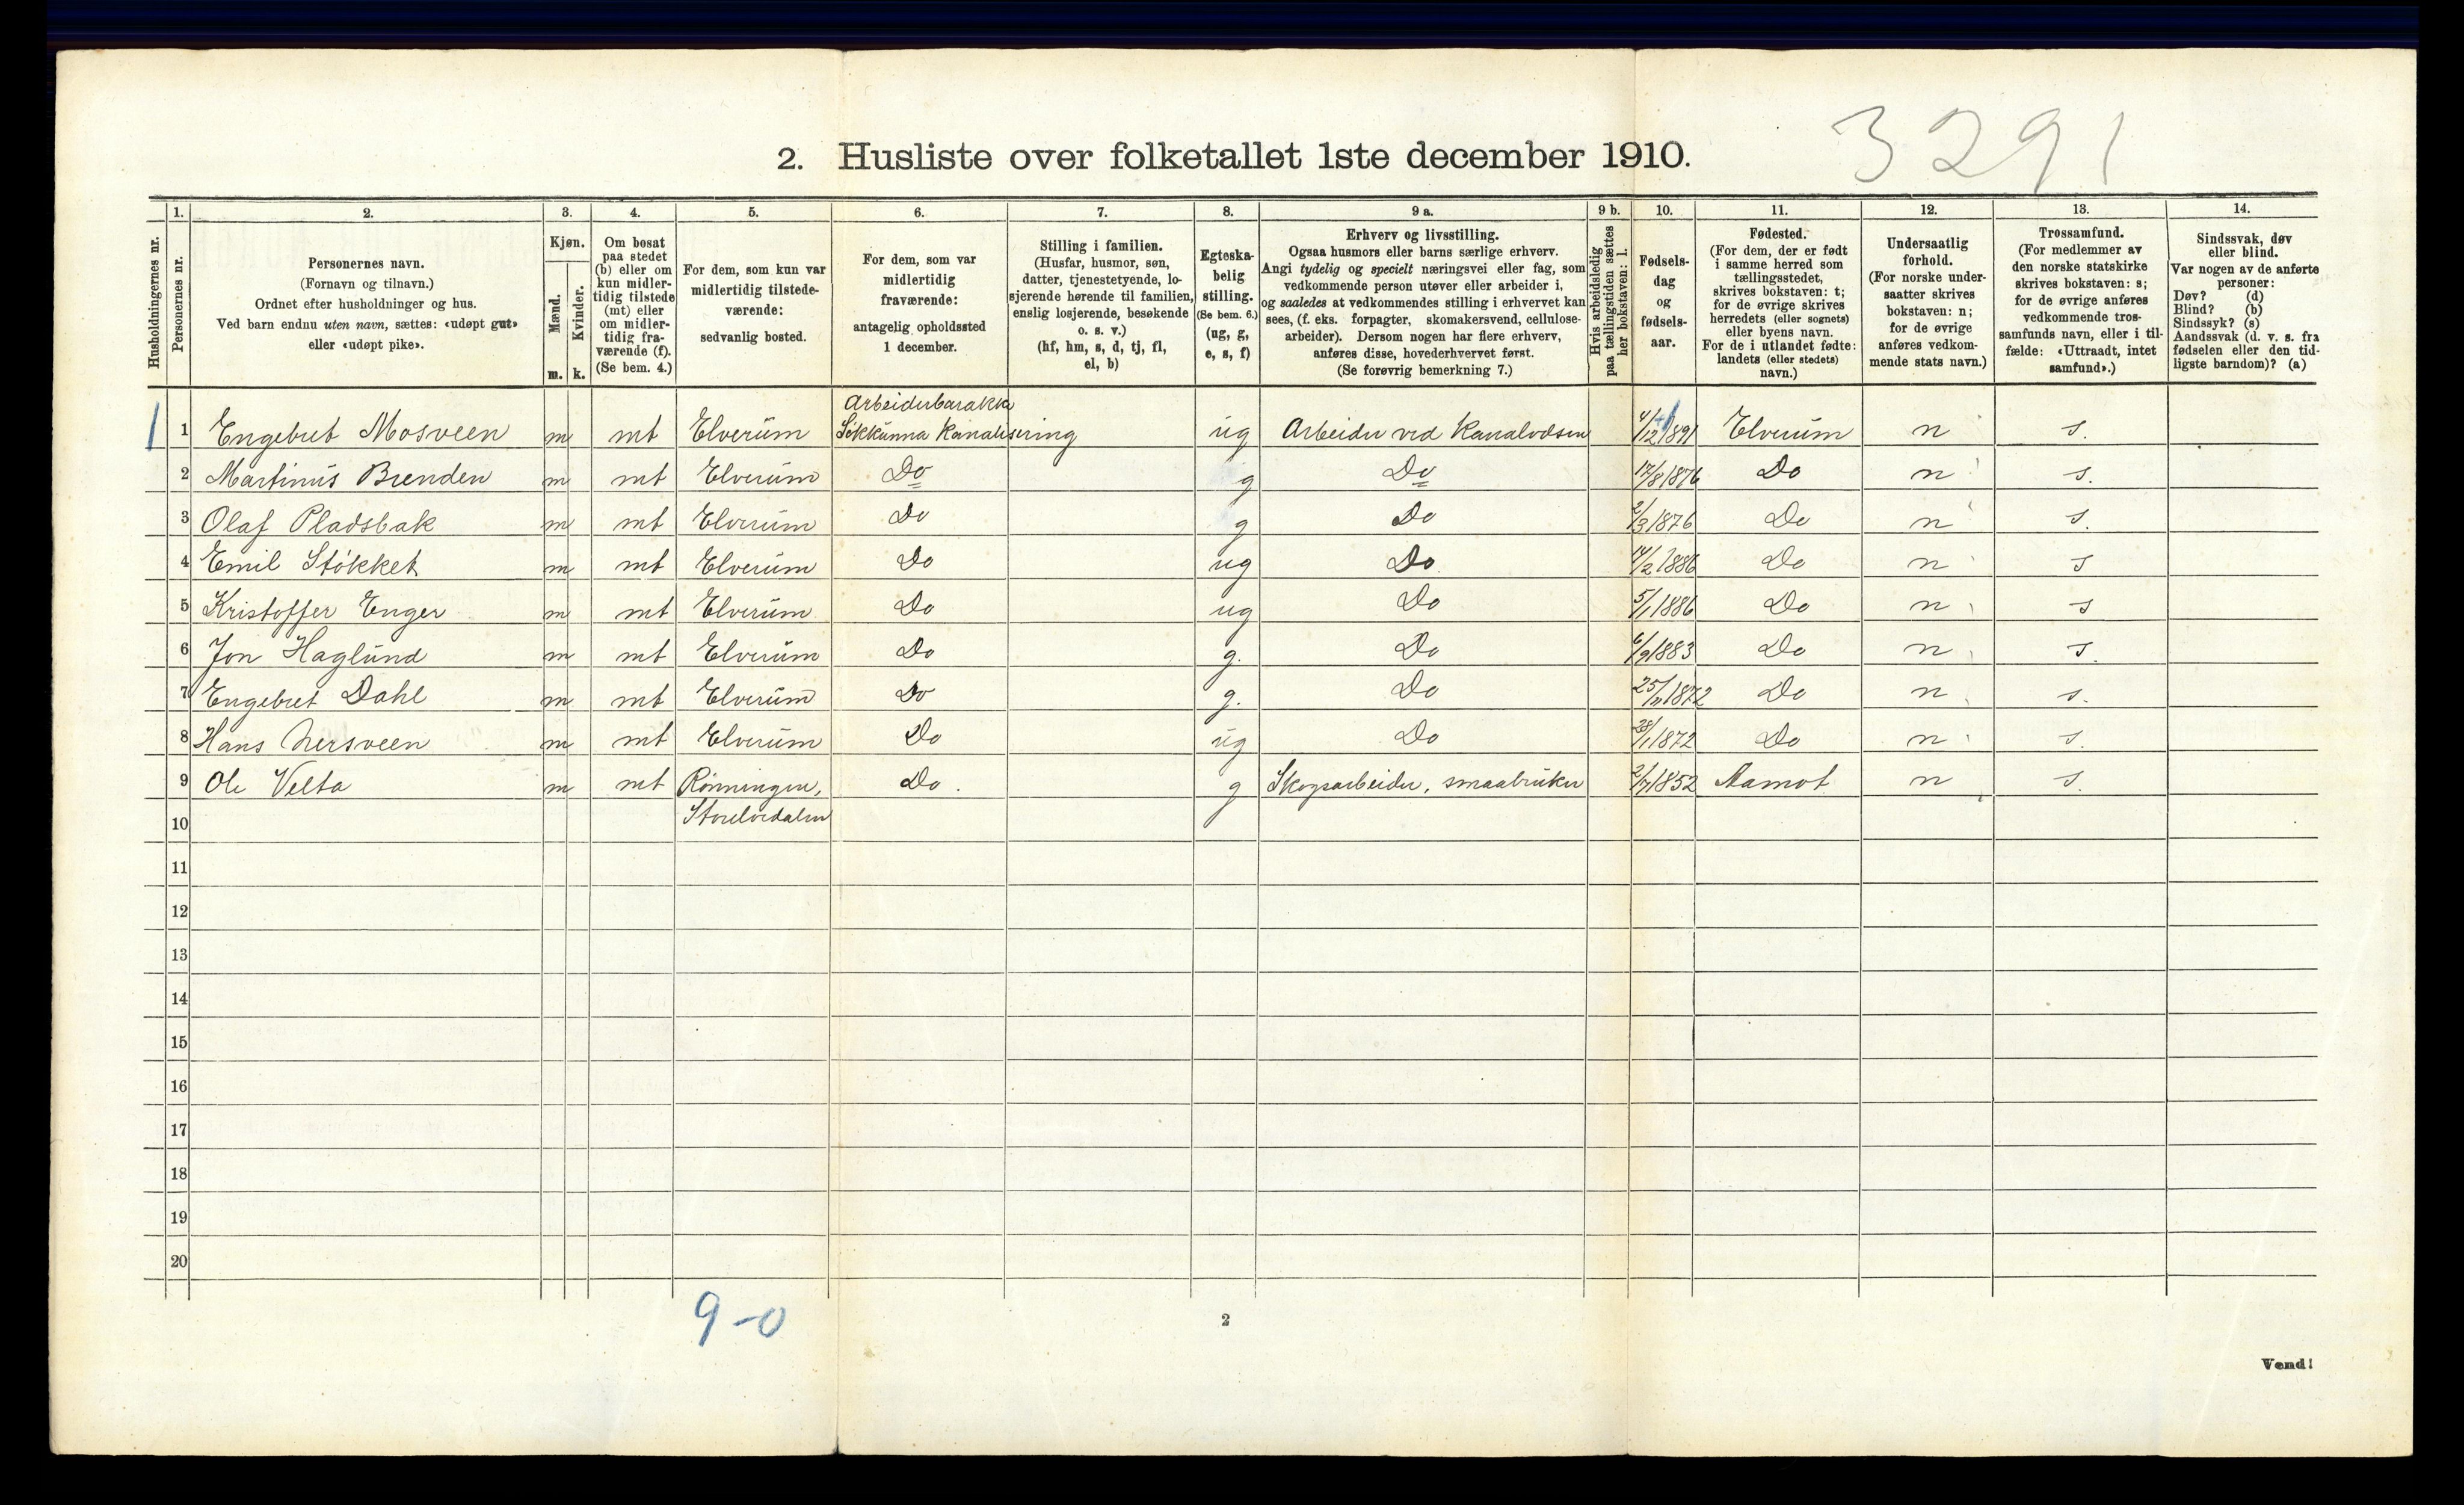 3291
2. Husliste over folketallet 1ste december 1910.
Husholdningernes nr.
1.
Personernes nr.
2.
Personernes navn.
(Fornavn og tilnavn.)
Ordnet efter husholdninger og hus.
Ved barn endnu uten navn, sættes: «udøpt gut»
eller «udøpt pike».
3.
Kjøn.
Mænd.
Kvinder.
m.
k.
4.
Om bosat
paa stedet
(b) eller om
kun midler-
tidig tilstede
(mt) eller
om midler-
tidig fra-
værende (f).
(Se bem. 4.)
5.
For dem, som kun var
midlertidig tilstede-
værende:
sedvanlig bosted.
6.
For dem, som var
midlertidig
fraværende:
antagelig opholdssted
1 december.
7.
Stilling i familien.
(Husfar, husmor, søn,
datter, tjenestetyende, lo-
sjerende hørende til familien,
enslig losjerende, besøkende
o. s. v.)
(hf, hm, s, d, tj, fl,
el, b)
8.
Egteska-
belig
stilling.
(Se bem. 6.)
(ug, g,
e, s, f)
9 a.
Erhverv og livsstilling.
Ogsaa husmors eller barns særlige erhverv.
Angi tydelig og specielt næringsvei eller fag, som
vedkommende person utøver eller arbeider i,
og saaledes at vedkommendes stilling i erhvervet kan
sees, (f. eks. forpagter, skomakersvend, cellulose-
arbeider). Dersom nogen har flere erhverv,
anføres disse, hovederhvervet først.
(Se forøvrig bemerkning 7.)
9 b.
Hvis arbeidsledig
paa tællingstiden sættes
her bokstaven: l.
10.
Fødsels-
dag
og
fødsels-
aar.
11.
Fødested.
(For dem, der er født
i samme herred som
tællingsstedet,
skrives bokstaven: t;
for de øvrige skrives
herredets (eller sognets)
eller byens navn.
For de i utlandet fødte:
landets (eller stedets)
navn.)
12.
Undersaatlig
forhold.
(For norske under-
saatter skrives
bokstaven: n;
for de øvrige
anføres vedkom-
mende stats navn.)
13.
Trossamfund.
(For medlemmer av
den norske statskirke
skrives bokstaven: s;
for de øvrige anføres
vedkommende tros-
samfunds navn, eller i til-
fælde: «Uttraadt, intet
samfund».)
14.
Sindssvak, døv
eller blind.
Var nogen av de anførte
personer:
Døv? (d)
Blind? (b)
Sindssyk? (s)
Aandssvak (d. v. s. fra
fødselen eller den tid-
ligste barndom)? (a)
Arbeiderbarakke
1 1 Engebret Mosveen m mt Elverum Søkkunna Kanalisering ug Arbeider ved Kanalvæsen 4/12 1891 Elverum n s.
2 Martinus Brenden m mt Elverum Do g Do 17/8 1876 Do n s.
3 Olaf Pladsbak m mt Elverum Do g Do 2/3 1876 Do n s.
4 Emil Støkket m mt Elverum Do ug Do 14/2 1886 Do n s
5 Kristoffer Enger m mt Elverum Do ug Do 5/1 1886 Do n s
6 Jon Haglund m mt Elverum Do g. Do 6/9 1883 Do n s.
7 Engebret Dahl m mt Elverum Do g. Do 25/11 1872 Do n s.
8 Hans Nersveen m mt Elverum Do ug Do 28/1 1872 Do n s.
9 Ole Velta m mt Rønningen, Do. g Skogsarbeider, smaabruker 2/7 1852 Aamot n s.
10 Storelvedalen
11
12
13
14
15
16
17
18
19
20
9-0
2
Vend!